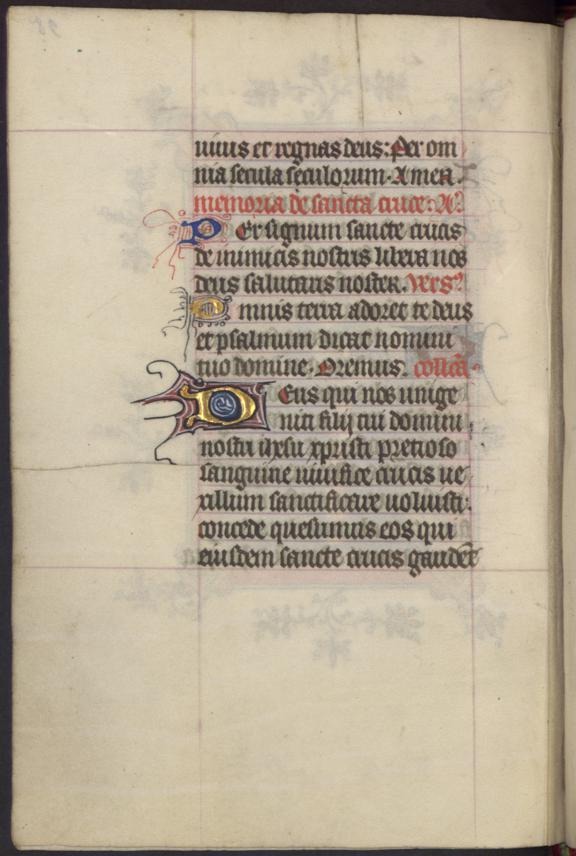 uiuis et regnas deus: Per om
nia secula seculorum. Amen.
memoria de sancta cruce: A'.
Per signum sancte crucis
de inimicis nostris libera nos
deus salutaris noster. Vers'.
Omnis terra adoret te deus
et psalmum dicat nomini
tuo domine. Oremus. collecta.
Deus qui nos unige
niti filij tui domini
nostri ihesu xpristi pretioso
sanguine uiuifice crucis ue
xillum sanctificare uoluisti:
concede quesumus eos qui
eiusdem sancte crucis gaudent